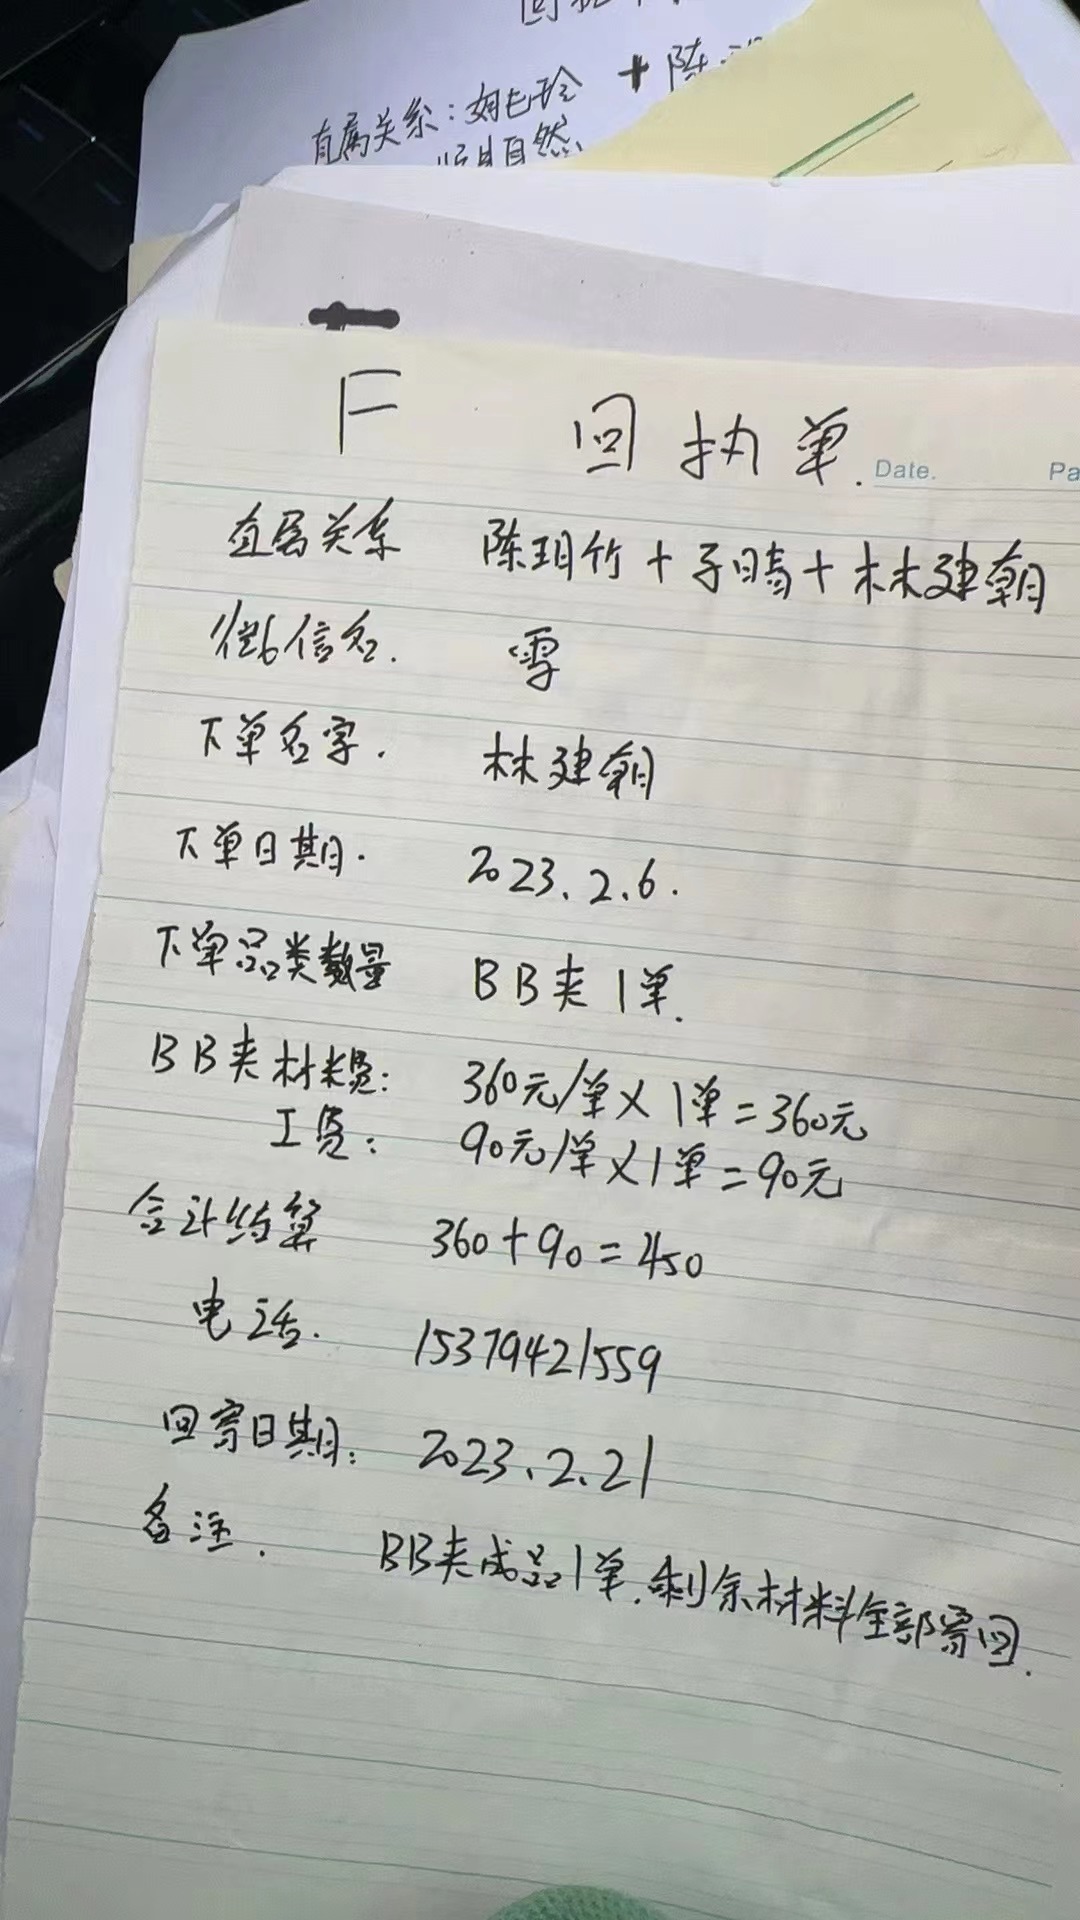 直属关系：
+陈
F
回执单.
Date.
直属关系 陈玥竹+子晴+林建朝
微信名. 雪
下单名字. 林建朝
下单日期. 2023.2.6.
下单品类数量 BB夹1单.
BB夹材料费: 360元/单×1单=360元
工费: 90元/单×1单=90元
合计结算 360+90=450
电话. 15379421559
回寄日期: 2023.2.21
备注. BB夹成品1单.剩余材料全部寄回.